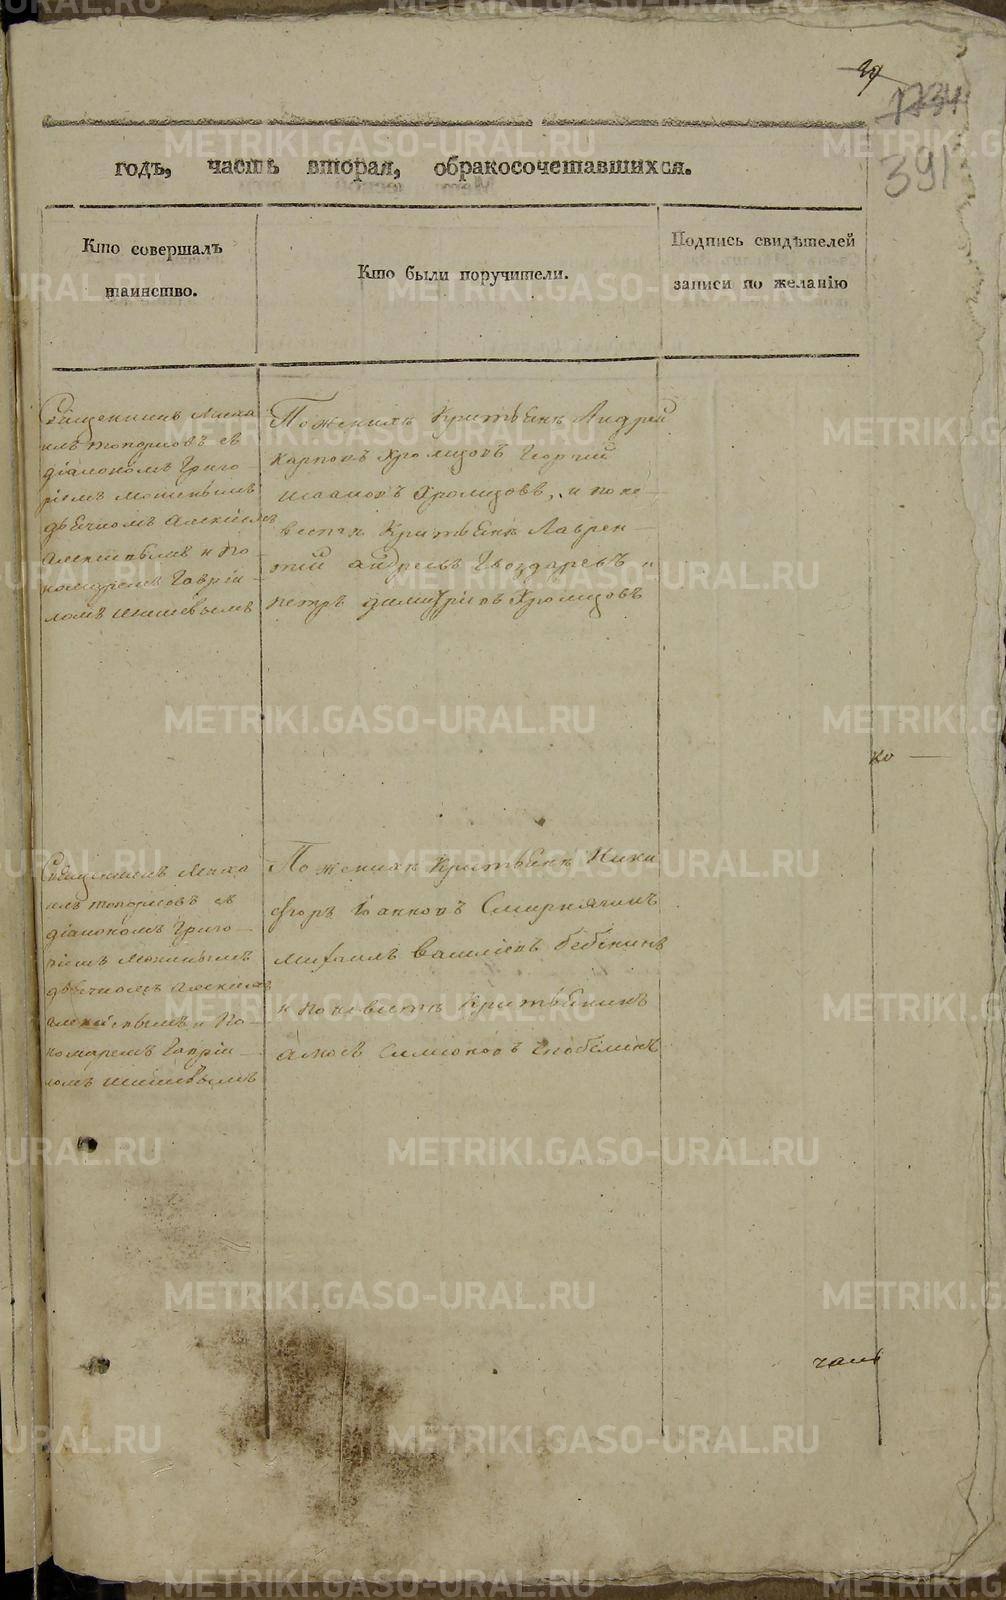 391
годъ, часть вторая, обракосочетавшихся.
Кто совершалъ
таинство.
Кто были поручители.
Подпись свидѣтелей
записи по желанію
Священникъ Миха
илъ Топорковъ съ
діакономъ Григо-
ріемъ
дьячкомъ Алексіемъ
Алексіевымъ и По-
номаремъ Гавріи-
ломъ Шишевымъ
По женихѣ Крестьяне Андрей
Карповъ Хромцовъ Георгій
Исааковъ Хромцовъ, и по не-
вестѣ Крестьяне Лаврен-
тій Андреевъ Гвоздаревъ и
петръ димитріевъ Хромцовъ
ко
Священникъ Миха
илъ Топорковъ съ
діакономъ Григо-
ріемъ
дьячкомъ Алексіемъ
Алексіевымъ и По-
номаремъ Гавріи-
ломъ Шишевымъ
По женихѣ Крестьяне Ники
форъ Іоанновъ Смирнягинъ
Михаилъ Василіевъ Бебенинъ
и по невестѣ Крестьянинъ
Симіоновъ
часть
METRIKI.GASO-URAL.RU